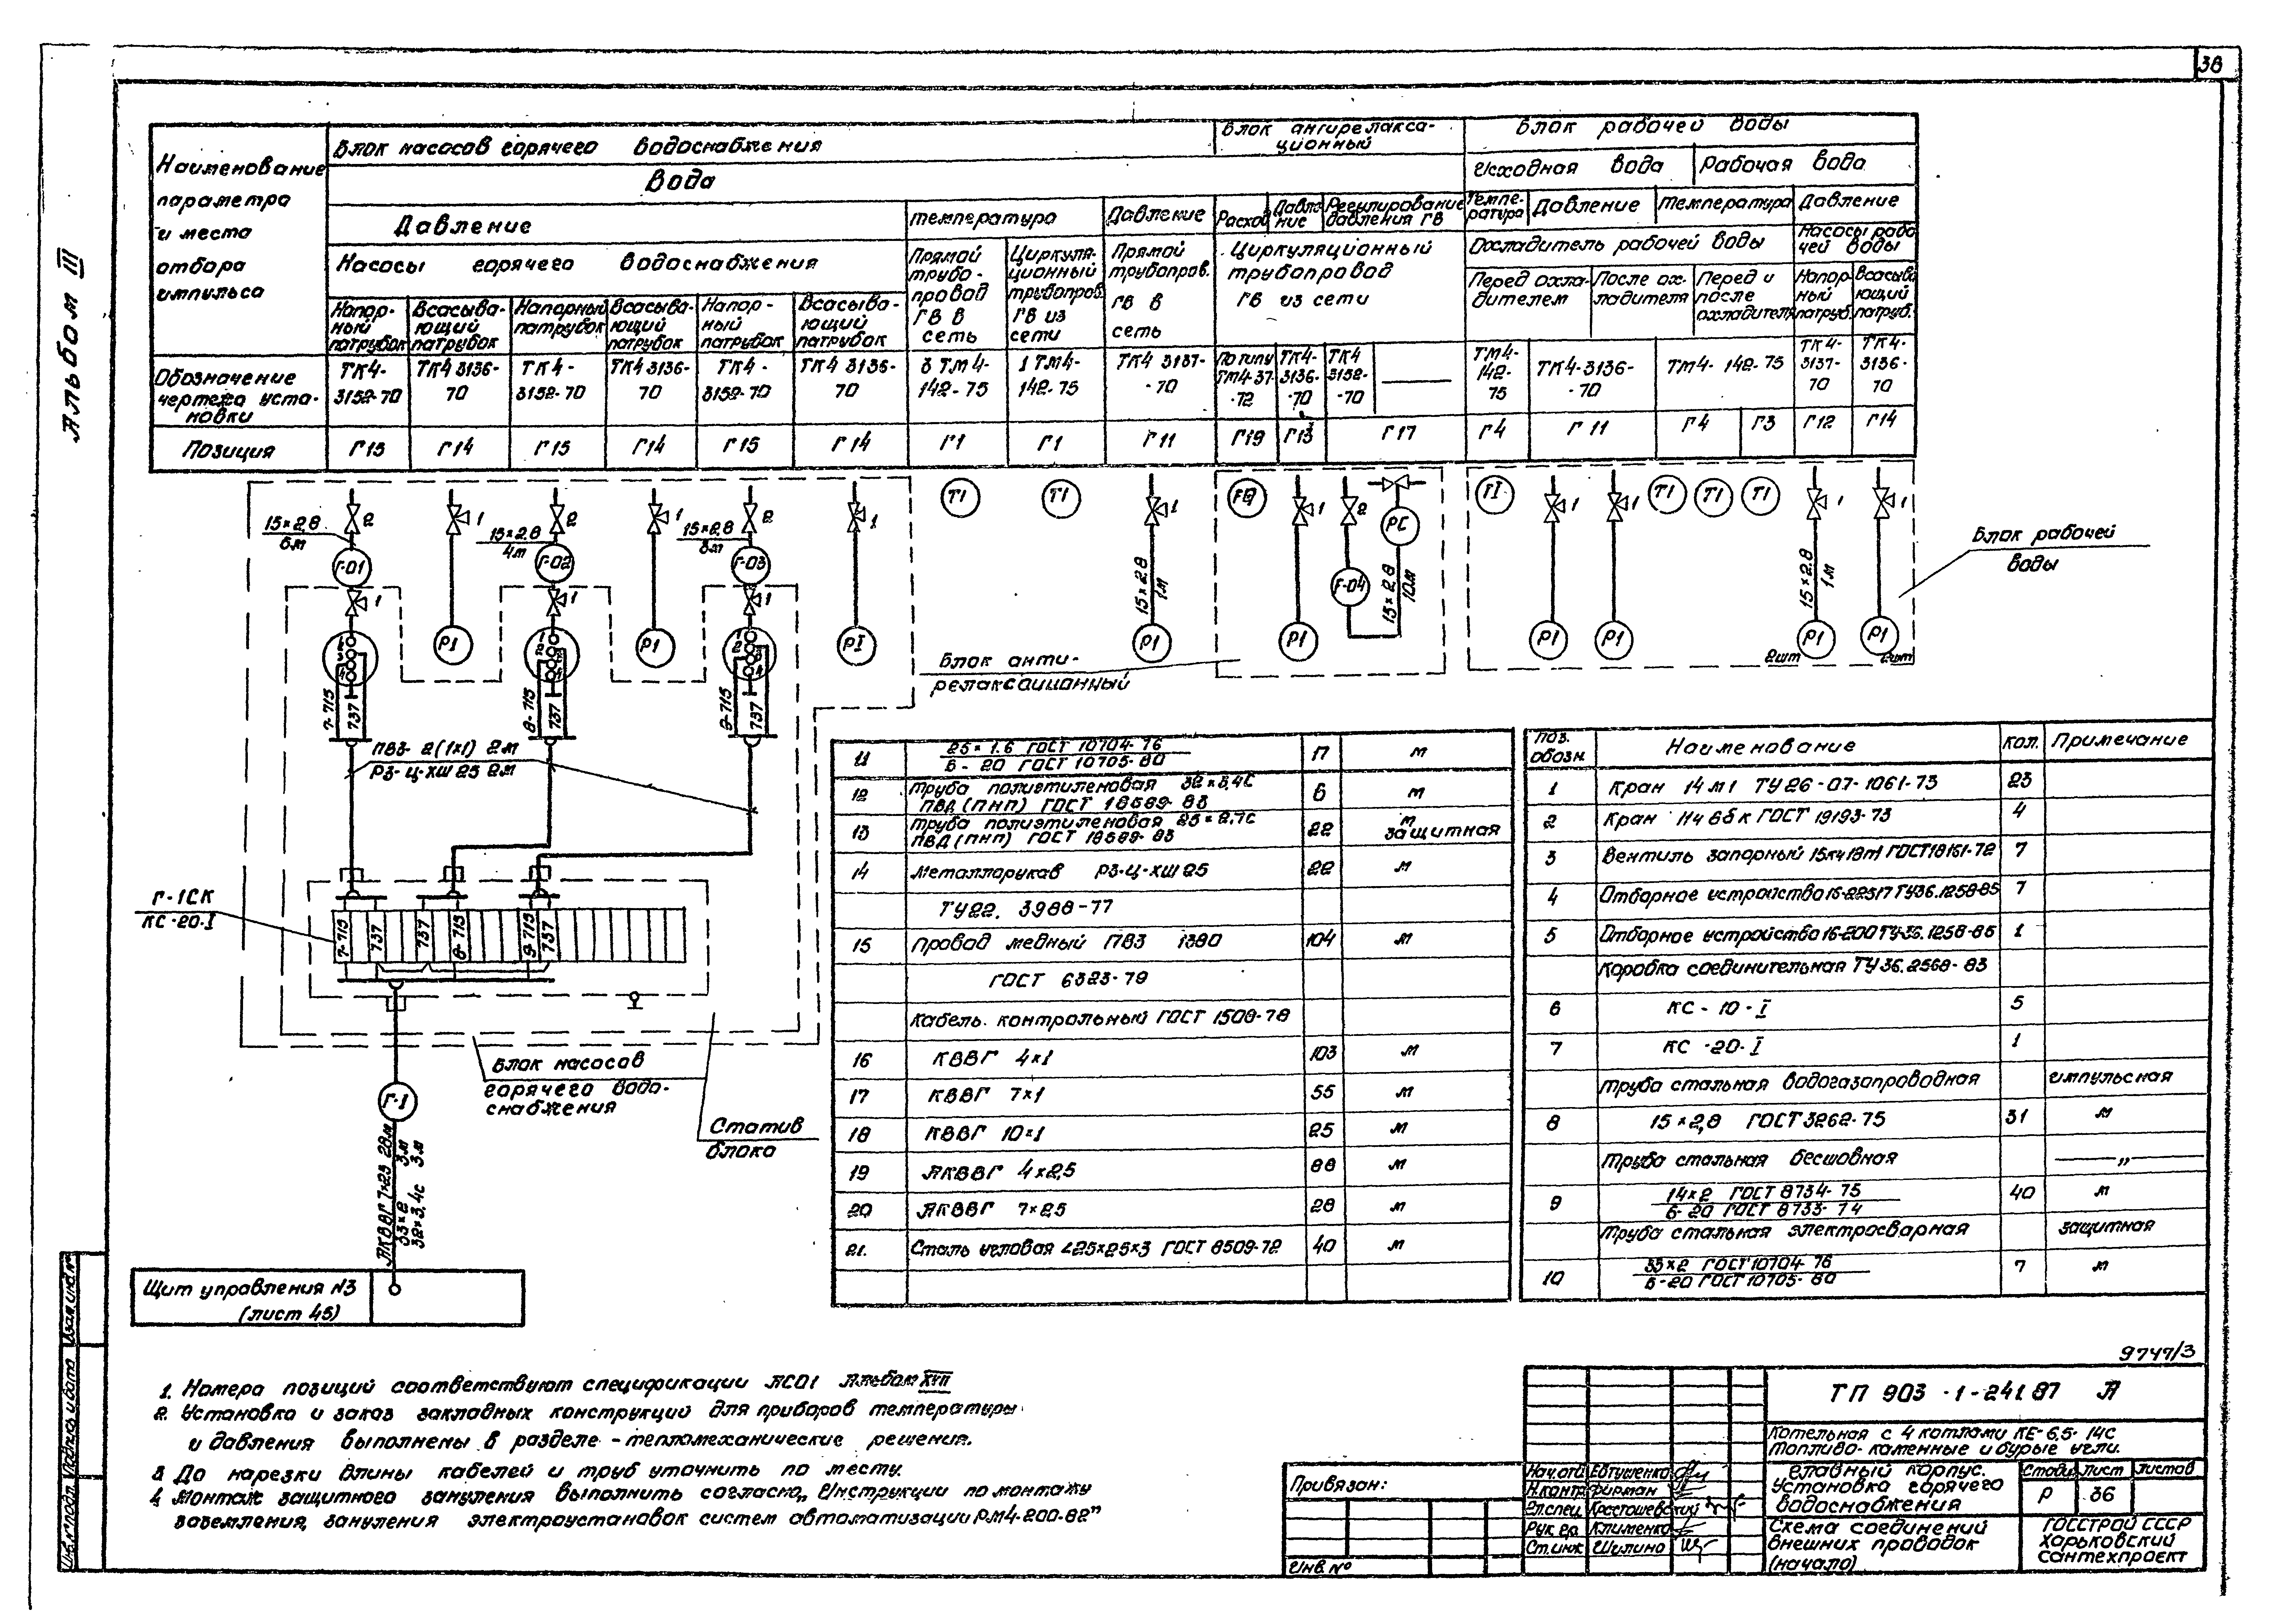 38
Альбом III
Наименование
параметра
и места
отбора
импульса
Блок насосов горячего водоснабжения
Блок антирелакса-
ционный
Блок рабочей воды
Вода
Исходная вода
Рабочая вода
Давление
Температура
Давление
Расход
Давле-
ние
Регулирование
давления ГВ
Темпе-
ратура
Давление
Температура
Давление
Насосы горячего водоснабжения
Прямой
трубо-
провод
ГВ в
сеть
Циркуля-
ционный
трубопров.
ГВ из
сети
Прямой
трубопров.
ГВ в
сеть
Циркуляционный
трубопровод
ГВ из сети
Охладитель рабочей воды
Насосы рабо
чей воды
Напор-
ный
патрубок
Всасыва-
ющий
патрубок
Напорный
патрубок
Всасыва-
ющий
патрубок
Напор-
ный
патрубок
Всасыва-
ющий
патрубок
Перед охла-
дителем
После ох-
ладителя
Перед и
после
охладителя
Напор-
ный
патруб.
Всасыва
ющий
патруб.
Обозначение
чертежа уста-
новки
ТК4-
3152-70
ТК4 3136-
70
ТК4-
3152-70
ТК4 3136-
70
ТК4-
3152-70
ТК4 3136-
70
3 ТМ4-
142-75
1 ТМ4-
142-75
ТК4 3137-
-70
По типу
ТМ4-37
-72
ТК4-
3136-
-70
ТК4
3152-
-70
ТМ4-
142-
75
ТК4-3136-
-70
ТМ4-142-75
ТК4-
3137-
70
ТК4-
3136-
70
Позиция
Г15
Г14
Г15
Г14
Г15
Г14
Г1
Г1
Г11
Г19
Г13
Г17
Г4
Г11
Г4
Г3
Г12
Г14
15×2,8
6м
2
1
15×2,8
4м
2
1
15×2,8
3м
2
1
Г-01
Г-02
Г-03
1
1
1
PI
PI
PI
TI
TI
1
15×2.8
1м
PI
FQ
1
2
PC
Г-04
15×2.8
10м
PI
TI
1
1
TI
TI
TI
1
1
15×2.8
1м
PI
PI
PI
PI
2шт
2шт
Блок рабочей
воды
Блок анти-
релаксационный
7-715
737
8-715
737
9-715
737
ПВ3- 2(1×1) 2м
РЗ-Ц-ХШ 25 2м
Г-1СК
КС-20-I
7-715
737
737
8-715
9-715
737
Блок насосов
горячего водо-
снабжения
Статив
блока
Г-1
АКВВГ 7×2.5 28м
33×2 3м
32×3,4С 3м
Щит управления №3
(лист 45)
11
25×1.6 ГОСТ 10704-76
Б-20 ГОСТ 10705-80
17
м
12
Труба полиэтиленовая 32×3,4С
ПВД(ПНП) ГОСТ 18589-83
6
м
13
Труба полиэтиленовая 25×2,7С
ПВД(ПНП) ГОСТ 18589-83
22
м
защитная
14
Металлорукав РЗ-Ц-ХШ 25
22
м
ТУ22. 3988-77
15
Провод медный ПВ3 1380
104
м
ГОСТ 6323-79
Кабель контрольный ГОСТ 1508-78
16
КВВГ 4×1
103
м
17
КВВГ 7×1
55
м
18
КВВГ 10×1
25
м
19
АКВВГ 4×2,5
88
м
20
АКВВГ 7×25
28
м
21.
Сталь угловая ∠25×25×3 ГОСТ 8509-72
40
м
Поз.
обозн.
Наименование
Кол.
Примечание
1
Кран 14м1 ТУ26-07-1061-73
23
2
Кран 11ч6бк ГОСТ 19193-73
4
3
Вентиль запорный 15кч18п1 ГОСТ18161-72
7
4
Отборное устройство 16-225П ТУ36.1258-85
7
5
Отборное устройство 16-200 ТУ36.1258-85
1
Коробка соединительная ТУ36.2568-83
6
КС-10-I
5
7
КС-20-I
1
Труба стальная водогазопроводная
импульсная
8
15×2,8 ГОСТ 3262-75
31
м
Труба стальная бесшовная
— " —
9
14×2 ГОСТ 8734-75
Б-20 ГОСТ 8733-74
40
м
Труба стальная электросварная
защитная
10
33×2 ГОСТ10704-76
Б-20 ГОСТ10705-80
7
м
1. Номера позиций соответствуют спецификации АСО1 Альбом XVII
2. Установка и заказ закладных конструкций для приборов температуры
и давления выполнены в разделе - тепломеханические решения.
3 До нарезки длины кабелей и труб уточнить по месту.
4 Монтаж защитного зануления выполнить согласно „Инструкции по монтажу
заземления, зануления электроустановок систем автоматизации РМ4-200-82"
9747/3
ТП 903-1-241.87 А
Котельная с 4 котлами КЕ-6,5-14С
Топливо-каменные и бурые угли.
Главный корпус.
Установка горячего
водоснабжения
Стади
Лист
Листов
Р
36
Схема соединений
внешних проводок
(начало)
ГОССТРОЙ СССР
Харьковский
Сантехпроект
Нач.отд.
Евтушенко
Н.контр.
Фирман
Гл.спец.
Рук.гр.
Клименко
Ст.инж.
Шулика
Привязан:
Инв.№
Взам.инв.№
Подпись и дата
Инв.№подл.